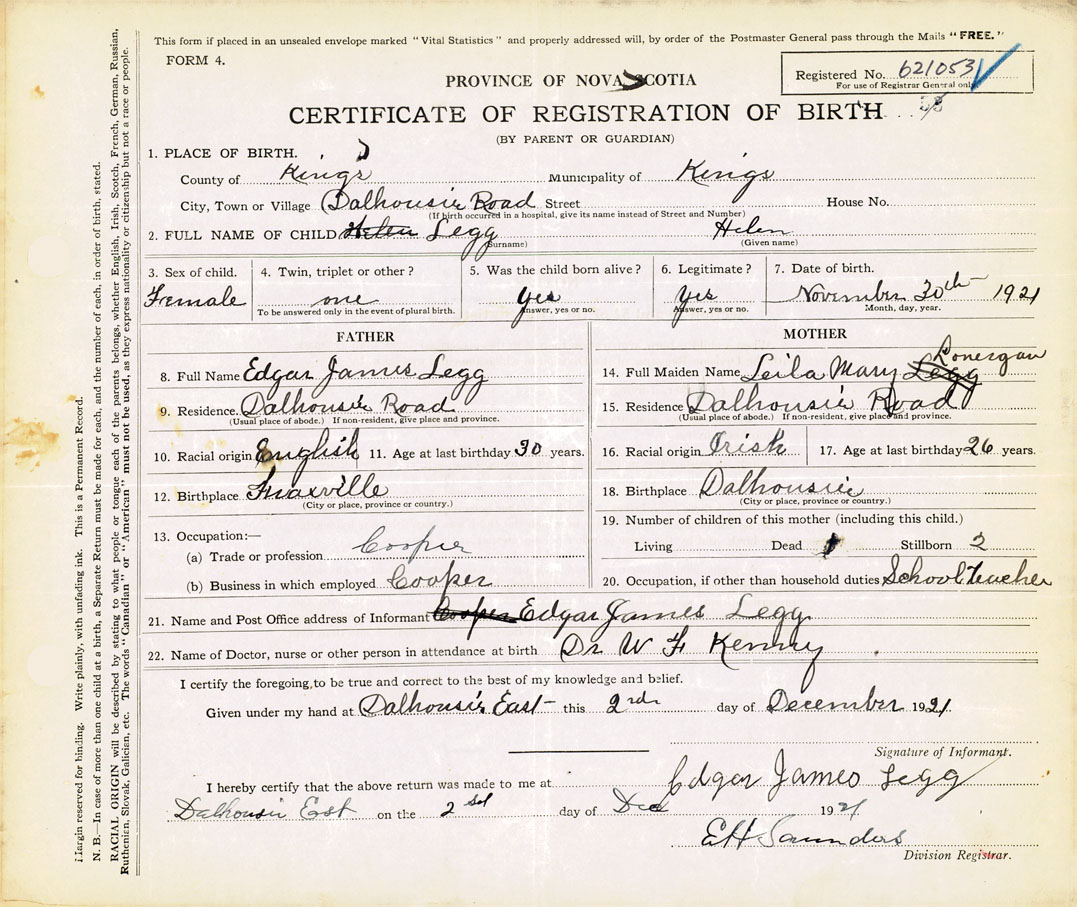 This form if placed in an unsealed envelope marked "Vital Statistics" and properly addressed will, by order of the Postmaster General pass through the Mails "FREE."
FORM 4.
Registered No. 621053
For use of Registrar General only.
PROVINCE OF NOVA SCOTIA
CERTIFICATE OF REGISTRATION OF BIRTH
(BY PARENT OR GUARDIAN)
1. PLACE OF BIRTH.
County of Kings Municipality of Kings
City, Town or Village Dalhousie Road Street House No.
(If birth occurred in a hospital, give its name instead of Street and Number)
2. FULL NAME OF CHILD Helen Legg Helen
(Surname) (Given name)
3. Sex of child. 4. Twin, triplet or other? 5. Was the child born alive? 6. Legitimate? 7. Date of birth.
Female one Yes Yes November 30th 1921
To be answered only in the event of plural birth. Answer, yes or no. Answer, yes or no. Month, day, year.
FATHER
8. Full Name Edgar James Legg
9. Residence. Dalhousie Road
(Usual place of abode.) If non-resident, give place and province.
10. Racial origin English 11. Age at last birthday 30 years.
12. Birthplace
(City or place, province or country.)
13. Occupation:—
(a) Trade or profession Cooper
(b) Business in which employed Cooper
MOTHER
Lonergan
14. Full Maiden Name Leila Mary Legg
15. Residence Dalhousie Road
(Usual place of abode.) If non-resident, give place and province.
16. Racial origin Irish 17. Age at last birthday 26 years.
18. Birthplace Dalhousie
(City or place, province or country.)
19. Number of children of this mother (including this child.)
Living Dead Stillborn 2
20. Occupation, if other than household duties School Teacher
21. Name and Post Office address of Informant Cooper Edgar James Legg
22. Name of Doctor, nurse or other person in attendance at birth Dr W F Kenny
I certify the foregoing, to be true and correct to the best of my knowledge and belief.
Given under my hand at Dalhousie East this 2nd day of December 1921
Signature of Informant.
Edgar James Legg
I hereby certify that the above return was made to me at
Dalhousie East on the 2 day of Dec 1921
E H Saunders
Division Registrar.
Margin reserved for binding. Write plainly, with unfading ink. This is a Permanent Record.
N. B.—In case of more than one child at a birth, a Separate Return must be made for each, and the number of each, in order of birth, stated.
RACIAL ORIGIN will be described by stating to what people or tongue each of the parents belongs, whether English, Irish, Scotch, French, German, Russian,
Ruthenian, Slovak, Galician, etc. The words "Canadian" or "American" must not be used, as they express nationality or citizenship but not a race or people.